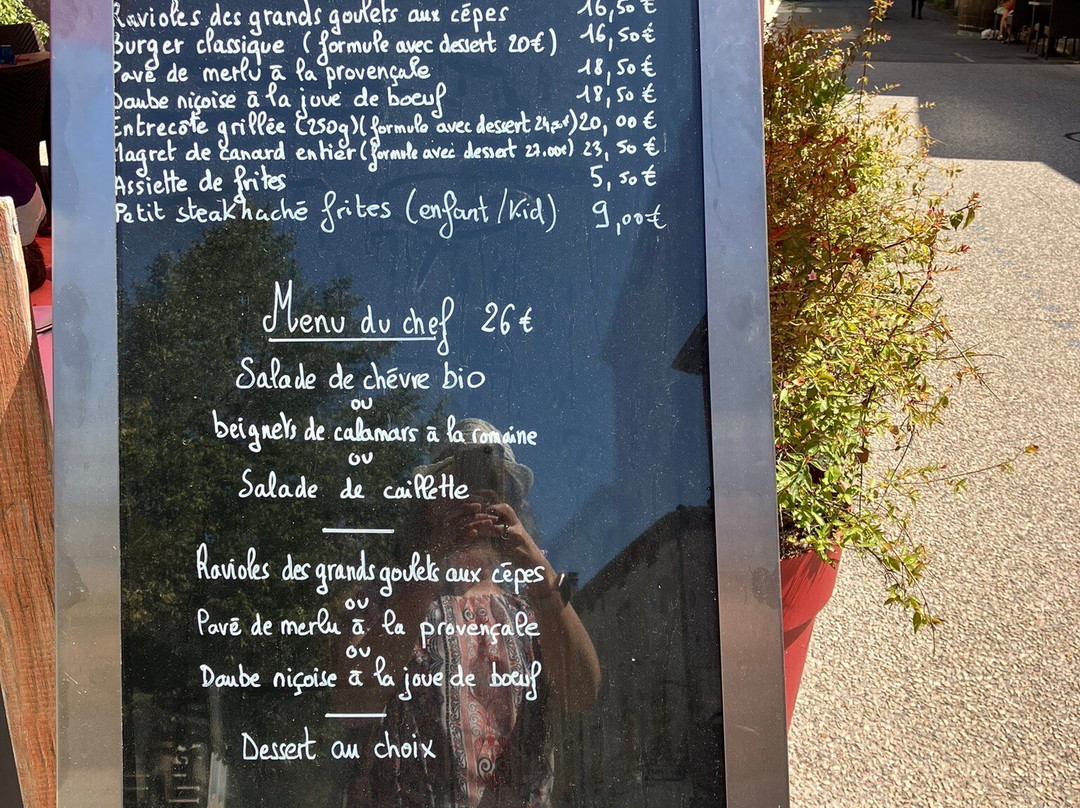 Ravioles des grands goulets aux cēpes 16,50 €
Burger classique (formule avec dessert 20€) 16,50€
Pavé de merlu ā la provençale 18,50 €
Daube niçoise ā la joue de boeuf 18,50 €
Entrecôte grillée (250g)(formule avec dessert 20,00 €
Magret de canard entier (formule avec dessert 27.00€) 23,50 €
Assiette de frites 5,50 €
Petit steak haché frites (enfant/Kid) 9,00€
Menu du chef 26 €
Salade de chēvre bio
ou
beignets de calamars ā la romaine
ou
Salade de caillette
Ravioles des grands goulets aux cēpes
ou
Pavē de merlu ā la provençale
ou
Daube niçoise ā la joue de boeuf
Dessert au choix